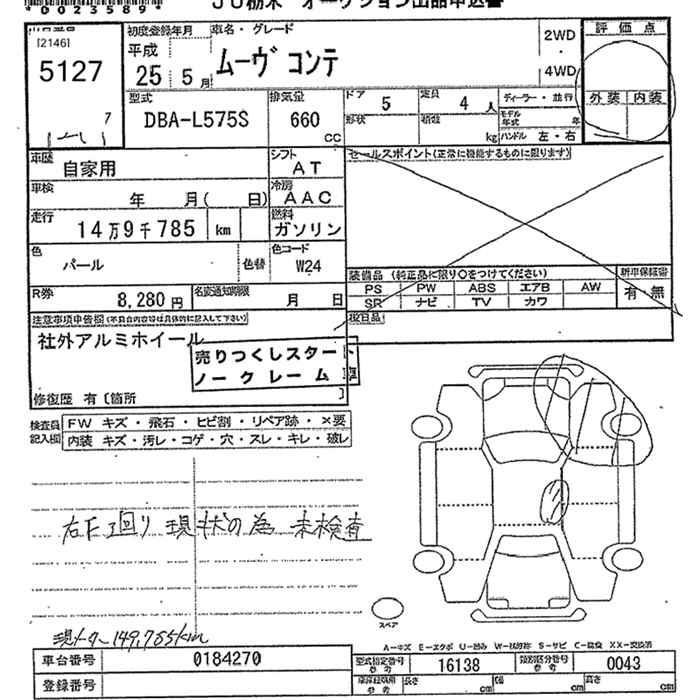 *0023589*
JU栃木 オークション出品申込書
出品番号
[2146]
5127
7
初度登録年月
平成
25 5 月
車名・グレード
ムーヴ コンテ
2WD
・
4WD
評価点
外装 内装
型式
DBA-L575S
排気量
660
CC
ドア
5
定員
4 人
形状
積載
kg
ディーラー・並行
モデル年式 年
ハンドル 左・右
車歴
自家用
シフト
AT
セールスポイント(正常に機能するものに限ります)
車検
年 月( 日)
冷房
AAC
走行
14万9千785 km
燃料
ガソリン
色
パール
色替
色コード
W24
R券
8,280円
名変通知期限
月 日
装備品 (純正品に限り○をつけてください)
PS PW ABS エアB AW
SR ナビ TV カワ
新車保証書
有・無
注意事項申告欄(不具合内容等は具体的に記入して下さい)
社外アルミホイール
売りつくしスタート
ノークレーム 車
修復歴 有〔箇所 〕
検査員記入欄
FW キズ・飛石・ヒビ割・リペア跡・×要
内装 キズ・汚レ・コゲ・穴・スレ・キレ・破レ
右F廻り 現状の為 未検査
現メーター149,785km
スペア
A-キズ E-エクボ U-凹み W-波跡 S-サビ C-腐食 XX-交換済
車台番号
0184270
登録番号
型式指定番号
参考
16138
類別区分番号
参考
0043
参考
長さ cm
幅 cm
高さ cm